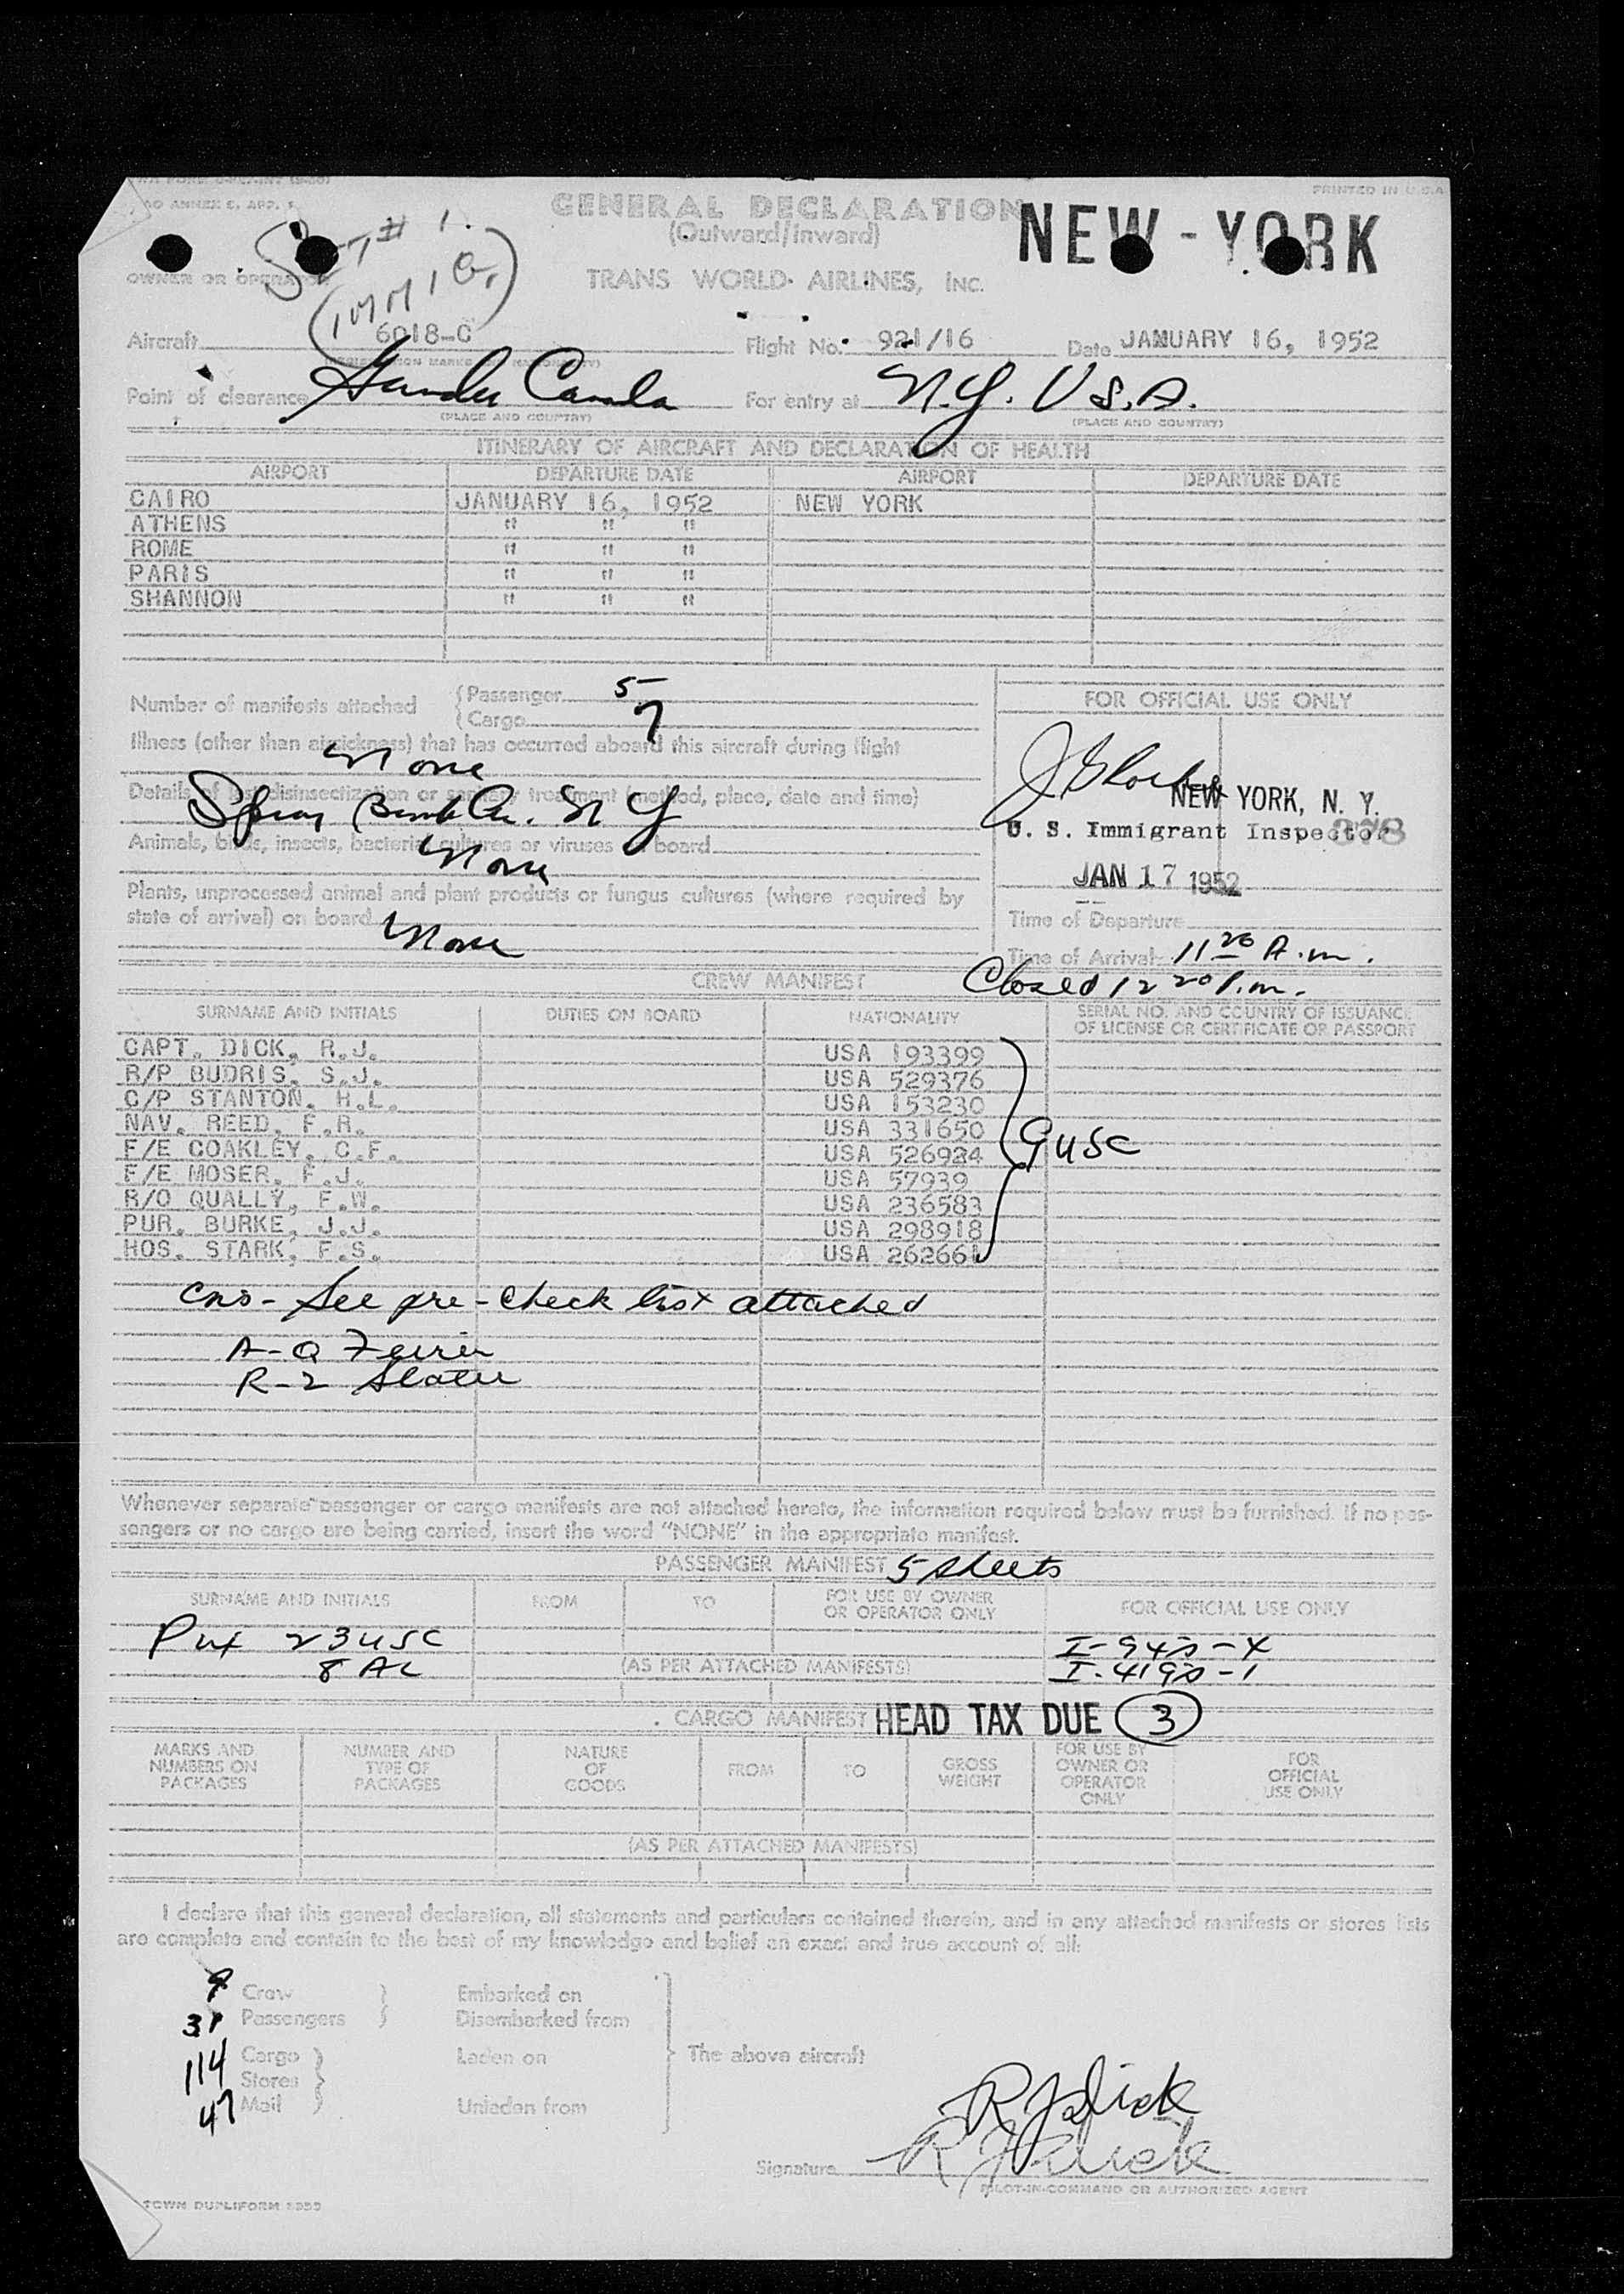 AO ANNEX 9, APP. 1
PRINTED IN U.S.A.
GENERAL DECLARATION
(Outward/Inward)
NEW-YORK
SET # 1.
(IMMIG.)
OWNER OR OPERATOR
TRANS WORLD AIRLINES, INC.
Aircraft 6018-C Flight No. 921/16 Date JANUARY 16, 1952
Point of clearance Gander Canada For entry at N.Y. U.S.A.
(PLACE AND COUNTRY) (PLACE AND COUNTRY)
ITINERARY OF AIRCRAFT AND DECLARATION OF HEALTH
AIRPORT DEPARTURE DATE AIRPORT DEPARTURE DATE
CAIRO JANUARY 16, 1952 NEW YORK
ATHENS " " "
ROME " " "
PARIS " " "
SHANNON " " "
Number of manifests attached
Passenger 5
Cargo 7
FOR OFFICIAL USE ONLY
Illness (other than airsickness) that has occurred aboard this aircraft during flight
None
Details of last disinsectization or sanitary treatment (method, place, date and time)
Spray Bomb N Y
Animals, birds, insects, bacterial cultures or viruses on board
None
Plants, unprocessed animal and plant products or fungus cultures (where required by
state of arrival) on board
None
NEW YORK, N. Y.
U. S. Immigrant Inspector 378
JAN 17 1952
Time of Departure
Time of Arrival 11 20 A.m.
Closed 12 20 P.m.
CREW MANIFEST
SURNAME AND INITIALS DUTIES ON BOARD NATIONALITY SERIAL NO. AND COUNTRY OF ISSUANCE
OF LICENSE OR CERTIFICATE OR PASSPORT
CAPT. DICK, R.J. USA 193399
R/P BUDRIS, S.J. USA 529376
C/P STANTON, H.L. USA 153230
NAV. REED, F.R. USA 331650
F/E COAKLEY, C.F. USA 526924
F/E MOSER, F.J. USA 57939
R/O QUALLY, F.W. USA 236583
PUR. BURKE, J.J. USA 298918
HOS. STARK, F.S. USA 262661
9 USC
See pre-check list attached
A-Q
R-Z Slater
Whenever separate passenger or cargo manifests are not attached hereto, the information required below must be furnished. If no pas-
sengers or no cargo are being carried, insert the word "NONE" in the appropriate manifest.
PASSENGER MANIFEST 5 sheets
SURNAME AND INITIALS FROM TO FOR USE BY OWNER
OR OPERATOR ONLY FOR OFFICIAL USE ONLY
23 USC
8 AL
(AS PER ATTACHED MANIFESTS)
I-94s-4
I-419s-1
CARGO MANIFEST HEAD TAX DUE 3
MARKS AND
NUMBERS ON
PACKAGES
NUMBER AND
TYPE OF
PACKAGES
NATURE
OF
GOODS
FROM
TO
GROSS
WEIGHT
FOR USE BY
OWNER OR
OPERATOR
ONLY
FOR
OFFICIAL
USE ONLY
(AS PER ATTACHED MANIFESTS)
I declare that this general declaration, all statements and particulars contained therein, and in any attached manifests or stores lists
are complete and contain to the best of my knowledge and belief an exact and true account of all:
9 Crew Embarked on
31 Passengers Disembarked from
114 Cargo Laden on The above aircraft
Stores
47 Mail Unladen from
R J Dick
R J Dick
Signature
PILOT-IN-COMMAND OR AUTHORIZED AGENT